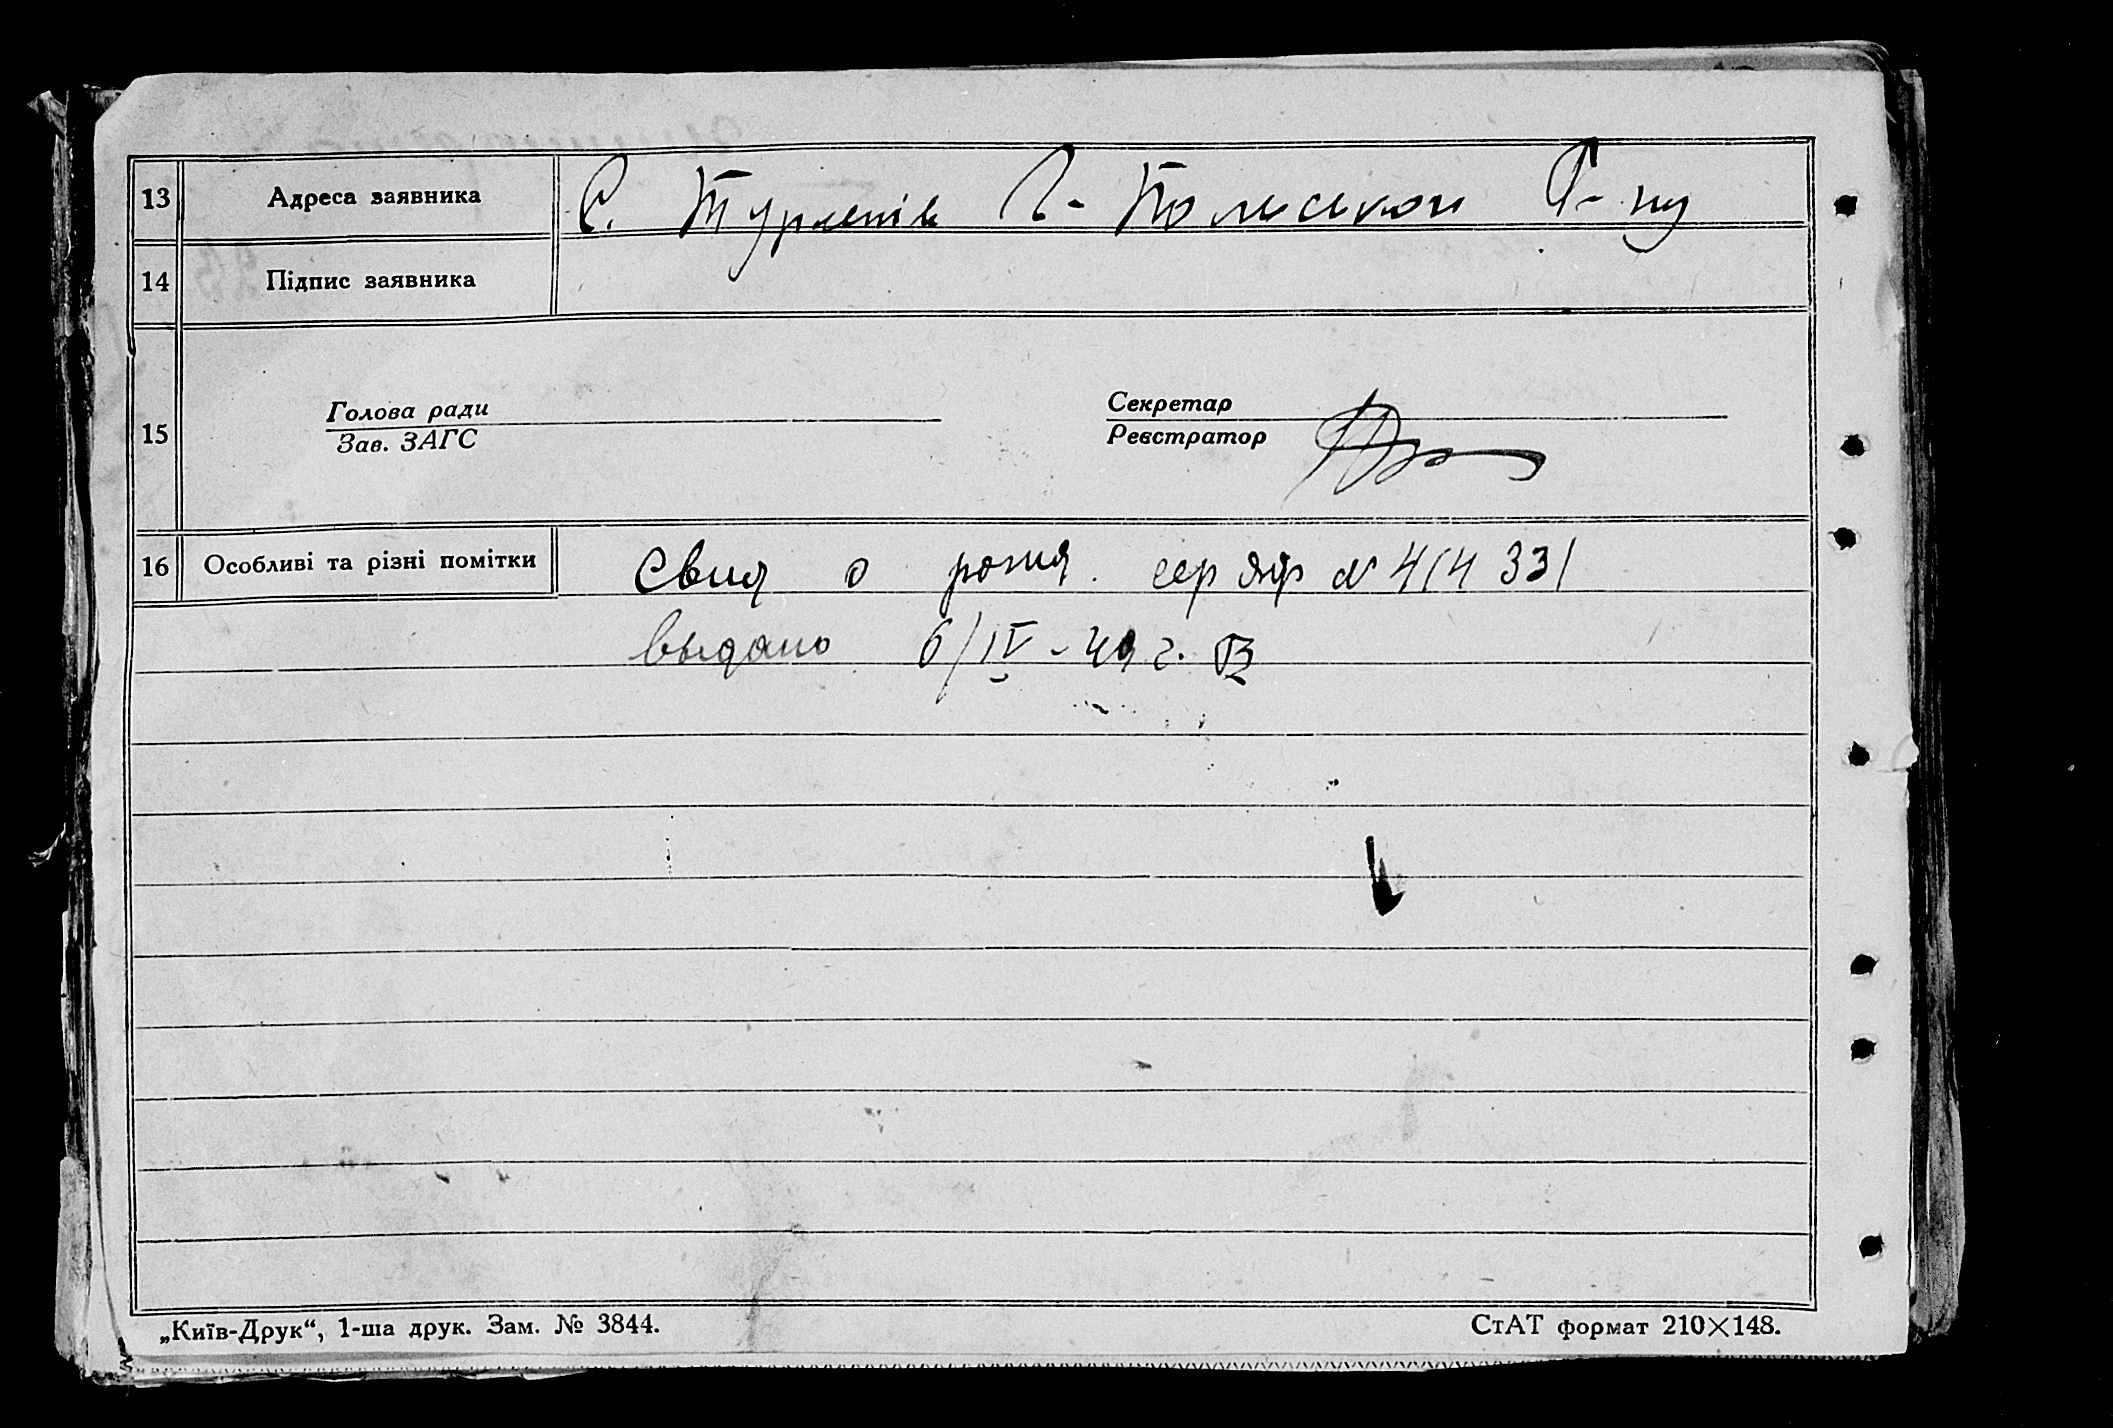 13 Адреса заявника С. Турлепів Г- Польської Р-ну
14 Підпис заявника
15 Голова ради Секретар
Зав. ЗАГС Реєстратор
16 Особливі та різні помітки Свид о рожд. сер ЯФ № 414 331
выдано 6/IV-49 г.
„Київ-Друк“, 1-ша друк. Зам. № 3844. СтАТ формат 210×148.